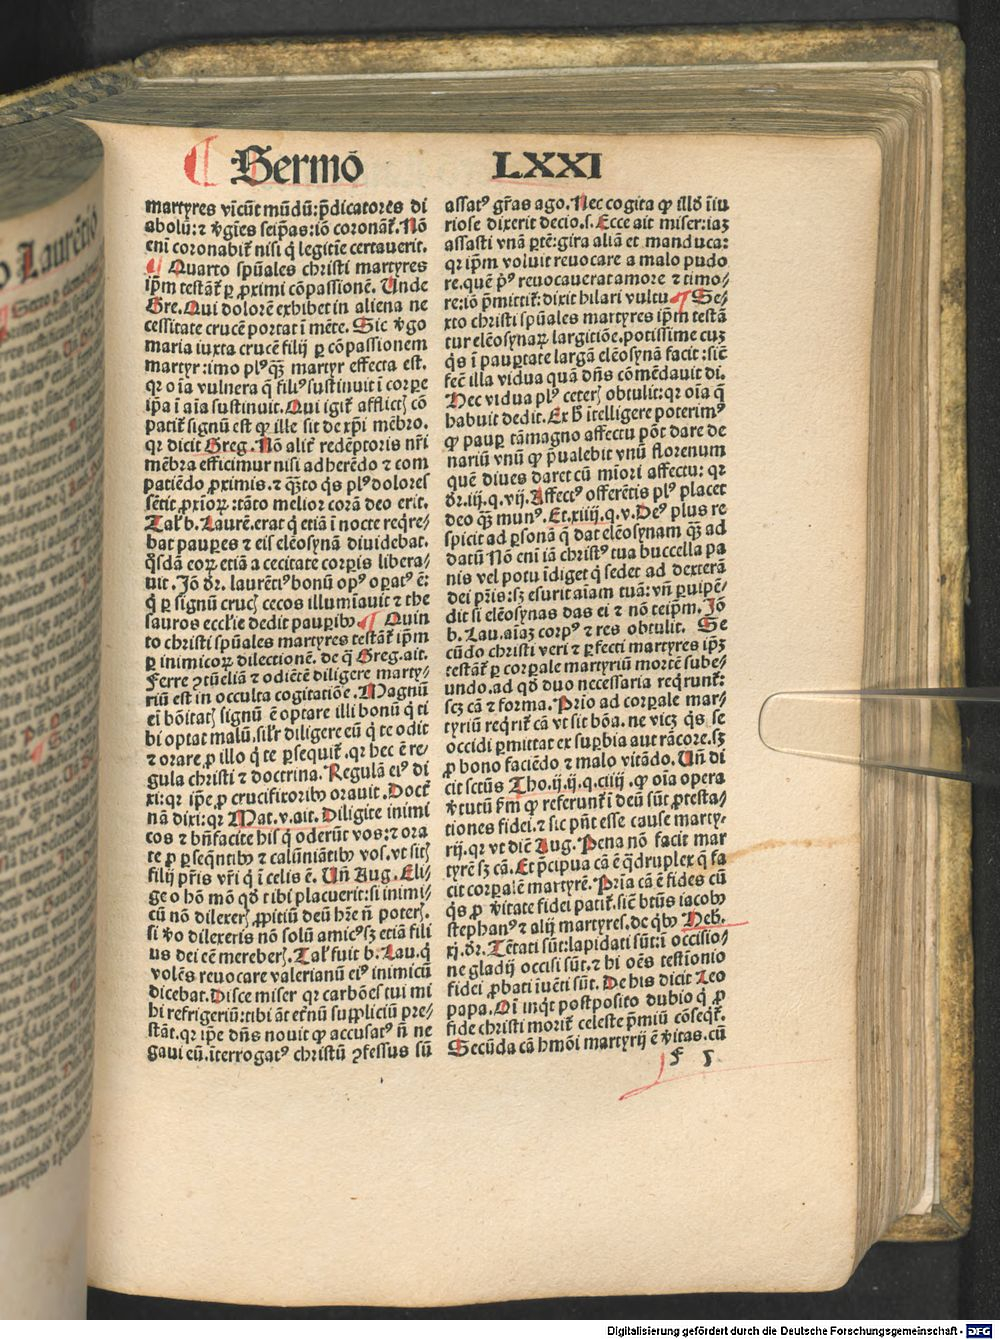 ¶ Sermō LXXI
martyres vīcūt mūdū: p̄dicatores di
abolū: ⁊ v̄gīes seip̄as: iō coronāt᷑. Nō
eni coronabit᷑ nisi q̇ legitīe certauerit.
¶ Quarto spūales christi martyres
ip̄m testāt᷑ ꝑ ꝓximi cōpassionē. Unde
Gre. Qui dolorē exhibet in aliena ne
cessitate crucē portat ī mēte. Sic v̄go
maria iuxta crucē filij ꝑ cōpassionem
martyr: imo plꝰq̄ꝫ martyr effecta est.
qr oīa vulnera q̄ filiꝰ sustinuit ī corꝑe
ip̄a ī aīa sustinuit. Qui igit᷑ afflictꝫ cō
patit᷑ signū est ꝙ ille sit de xp̄i mēbro.
qr dicit Greg. Nō alit᷑ redēptoris nr̄i
mēbra efficimur nisi adherēdo ⁊ com
patiēdo ꝓximis. ⁊ q̄ꝫto q̇s plꝰ dolores
sētit ꝓxīoꝝ: tāto melior corā deo erit.
Tal᷑ b. Laurē. erat q̇ etiā ī nocte req̇re⸗
bat pauꝑes ⁊ eis elēosynā diuidebat.
q̇sdā eoꝝ etiā a cecitate corꝑis libera⸗
uit. Jō dr̄. laurētiꝰ bonū opꝰ oꝑatꝰ ē:
q̇ ꝑ signū crucꝫ cecos illumīauit ⁊ the
sauros eccl᷑ie dedit pauꝑibꝰ ¶ Quin
to christi spūales martyres testāt᷑ ip̄m
ꝑ inimicoꝝ dilectionē. de q̄ Greg. ait.
Ferre ꝯtūeliā ⁊ odiētē diligere marty⸗
riū est in occulta cogitatiōe. Magnū
ei bōitatꝫ signū ē optare illi bonū q̇ ti
bi optat malū. sil᷑r diligere eū q̇ te odit
⁊ orare ꝓ illo q̇ te ꝑsequit᷑. qr hec ē re⸗
gula christi ⁊ doctrina. Regulā eiꝰ di
xi: qr ip̄e ꝓ crucifixoribꝰ orauit. Doct᷑
nā dixi: qr Mat. v. ait. Diligite inimi
cos ⁊ bn̄facite his q̇ oderūt vos: ⁊ ora
te ꝓ ꝑseq̄ntibꝰ ⁊ calūniātibꝰ vos. vt sitꝫ
filij pr̄is vr̄i q̇ ī celis ē. Un̄ Aug. Eli⸗
ge o hō mō qd̄ tibi placuerit: si inimi⸗
cū nō dilexerꝫ ꝓpitiū deū hr̄e n̄ poterꝫ.
si v̄o dilexeris nō solū amicꝰ sꝫ etiā fili
us dei cē mereberꝫ. Tal᷑ fuit b. Lau. q̇
volēs reuocare valerianū eiꝰ inimicū
dicebat. Disce miser qr carbōes tui mi
hi refrigeriū: tibi āt et᷑nū suppliciū pre⸗
stāt. qr ip̄e dn̄s nouit ꝙ accusatꝰ n̄ ne
gaui eū. īterrogatꝰ christū ꝯfessus sū
assatꝰ gr̄as ago. Nec cogita ꝙ illd̄ īiu
riose dixerit decio. s. Ecce ait miser: iaꝫ
assasti vnā ꝑtē: gira aliā et manduca:
qr ip̄m voluit reuocare a malo pudo
re. quē pꝰ reuocauerat amore ⁊ timo⸗
re: iō p̄mittit᷑: dixit hilari vultu ¶ Se⸗
xto christi spūales martyres ip̄m testā
tur elēosynaꝝ largitiōe. potissime cuꝫ
q̇s ī pauꝑtate largā elēosynā facit: sic̄
fec̄ illa vidua quā dn̄s cōmēdauit di.
Hec vidua plꝰ ceterꝫ obtulit: qr oīa q̄
habuit dedit. Ex h̄ ītelligere poterimꝰ
ꝙ pauꝑ tāmagno affectu pōt dare de
nariū vnū ꝙ p̄ualebit vnū florenum
quē diues daret cū miori affectu: qr
dr̄. iij. q. vij. Affectꝰ offerētis plꝰ placet
deo q̄ꝫ munꝰ. Et. xiiij. q. v. Deꝰ plus re
spicit ad ꝑsonā q̄ dat elēosynam q̄ꝫ ad
datū Nō eni iā christꝰ tua buccella pa
nis vel potu īdiget q̇ sedet ad dexterā
dei pr̄is: sꝫ esurit aīam tuā: vn̄ ꝑuipē⸗
dit si elēosynas das ei ⁊ nō teip̄m. Jō
b. Lau. aīaꝫ corpꝰ ⁊ res obtulit. Se
cūdo christi veri ⁊ ꝑfecti martyres ip̄ꝫ
testāt᷑ ꝑ corꝑale martyriū mortē sube⸗
undo. ad qd̄ duo necessaria reqrunt᷑:
scꝫ cā ⁊ forma. Prio ad corꝑale mar⸗
tyriū reqrit᷑ cā vt sit bōa. ne vicꝫ q̇s se
occidi ꝑmittat ex suꝑbia aut rācore. sꝫ
ꝓ bono faciēdo ⁊ malo vitādo. Un̄ di
cit sctūs Tho. ij. ij. q. cxiiij. ꝙ oīa opera
v̄tutū fm̄ ꝙ referunt᷑ ī deū sūt ꝓtesta⸗
tiones fidei. ⁊ sic pn̄t esse cause marty⸗
rij. qr vt dic̄ Aug. Pena nō facit mar
tyrē sꝫ cā. Et p̄cipua cā ē q̄druplex q̄ fa
cit corꝑalē martyrē. Pria cā ē fides cū
q̇s ꝓ v̄itate fidei patit᷑. sic̄ btūs iacobꝰ
stephanꝰ ⁊ alij martyres. de qbꝰ Heb.
xj. dr̄. Tētati sūt: lapidati sūt: ī occisio⸗
ne gladij occisi sūt. ⁊ hi oēs testīonio
fidei ꝓbati īuēti sūt. De his dicit Leo
papa. Oī inq̇t postposito dubio q̇ ꝓ
fide christi morit᷑ celeste p̄miū cōseqt᷑.
Secūda cā hmōi martyrij ē v̄itas. cū
f 1
Digitalisierung gefördert durch die Deutsche Forschungsgemeinschaft - DFG